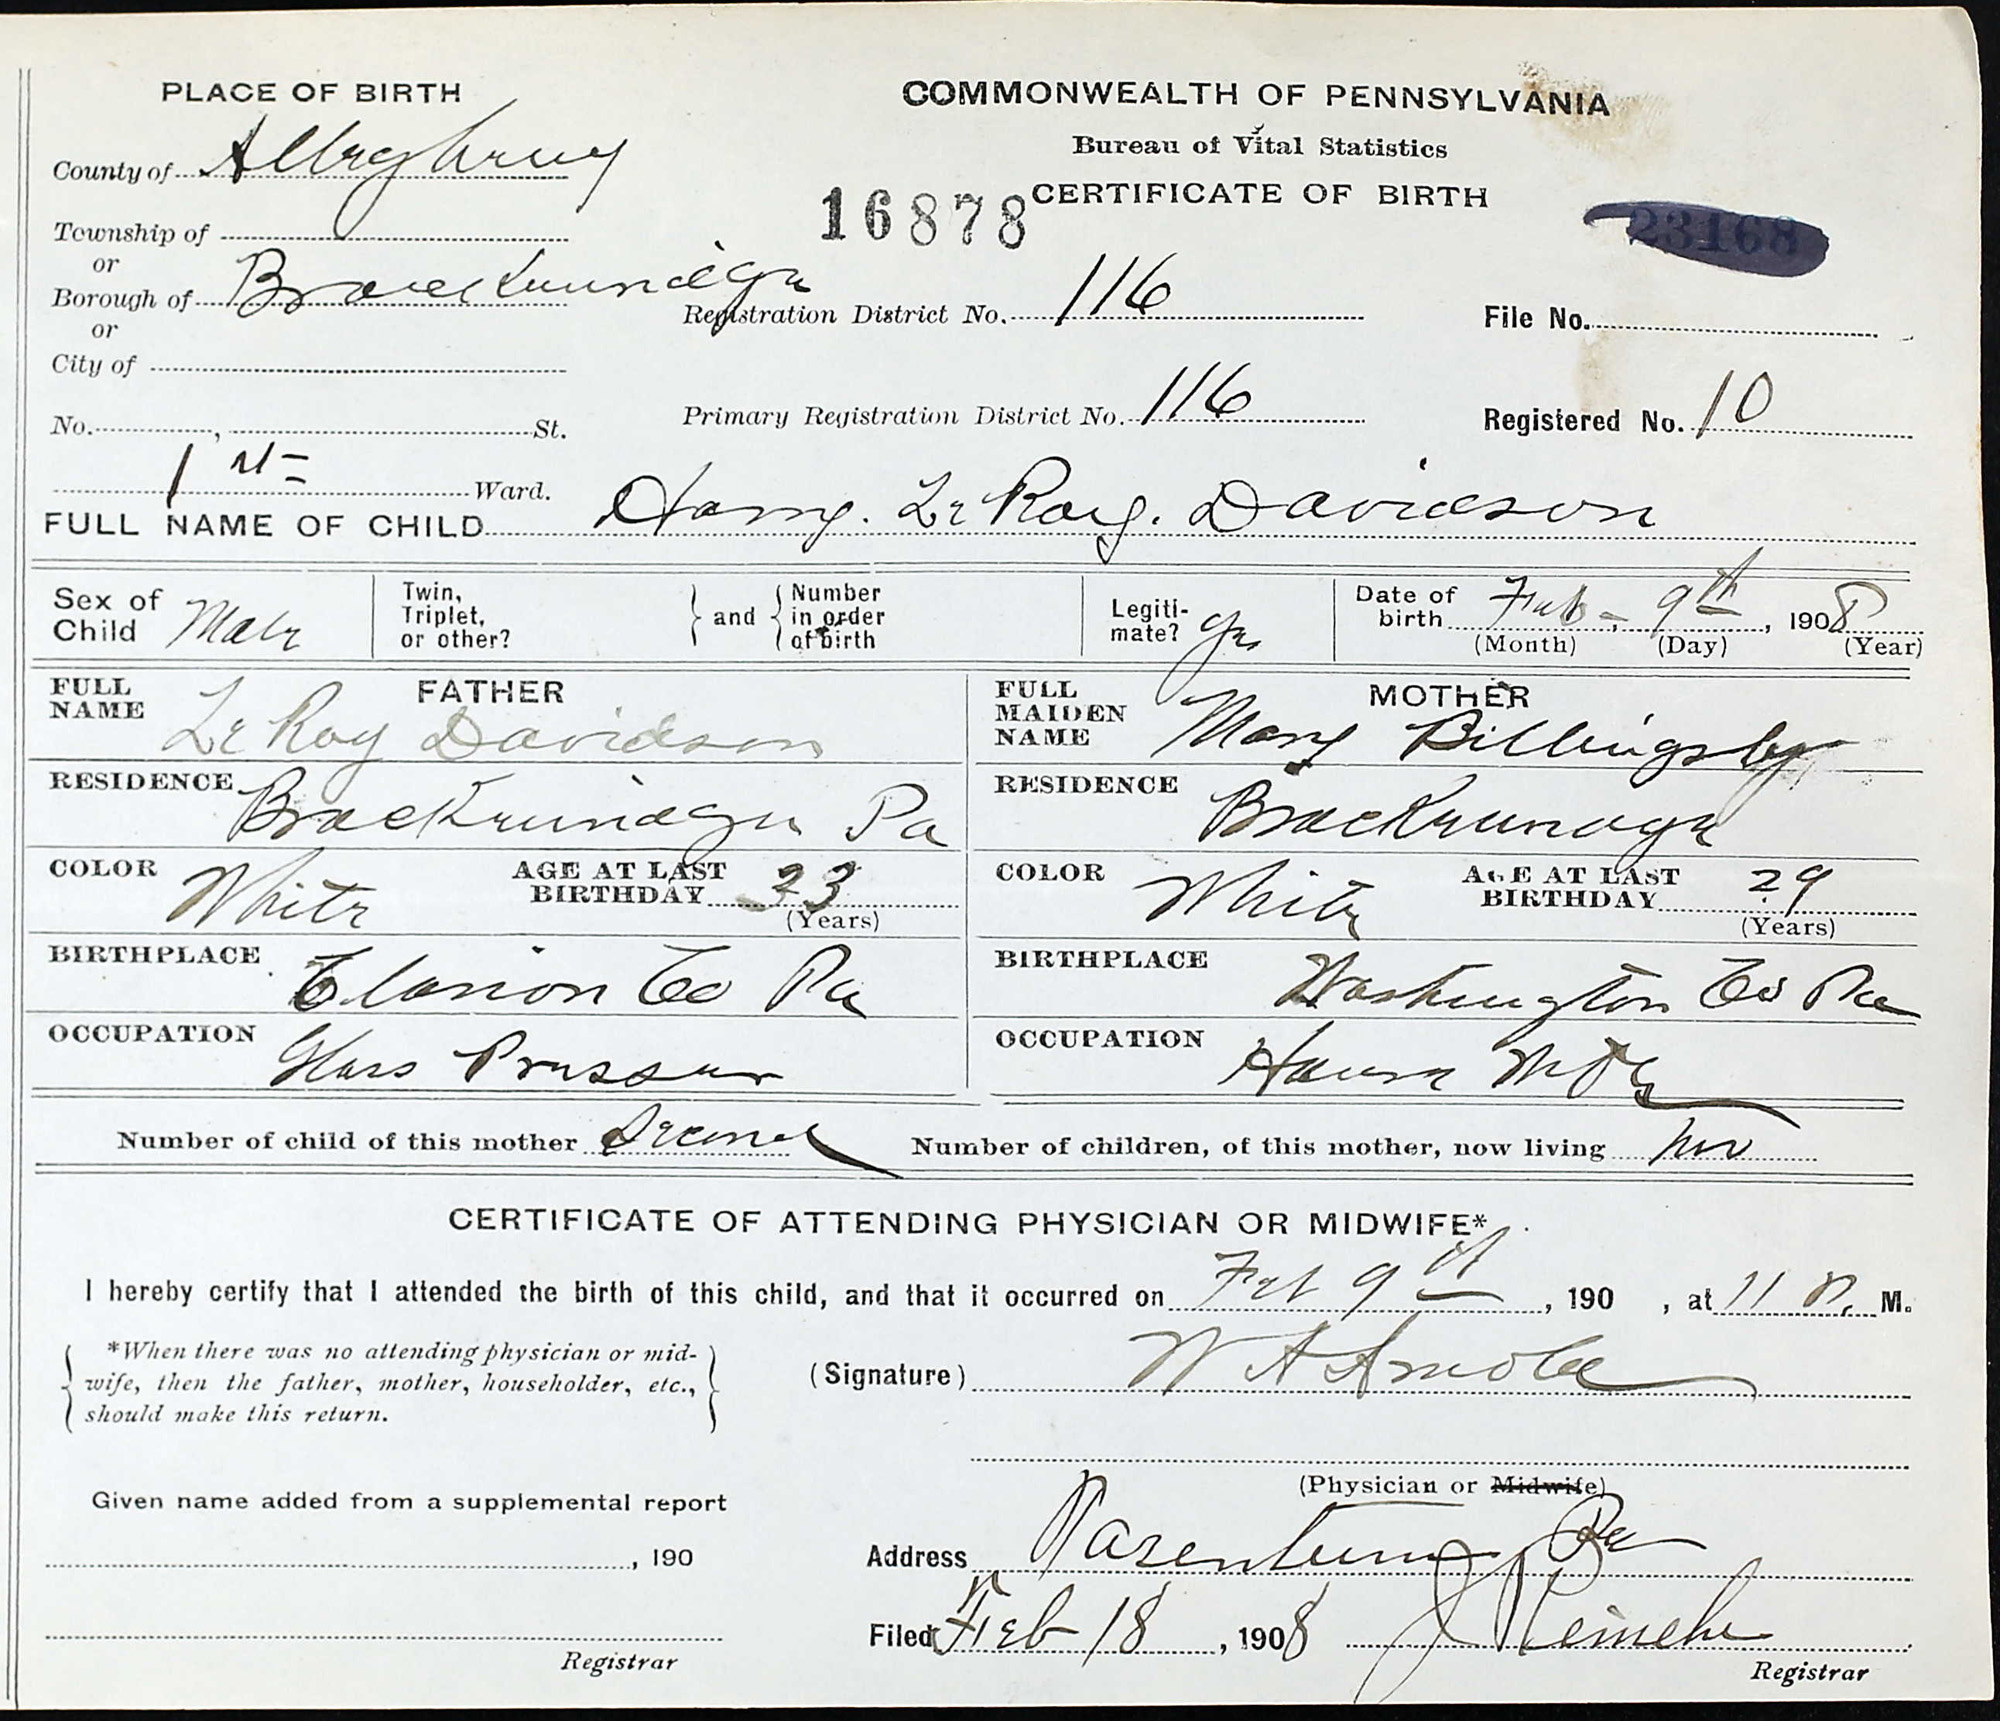 PLACE OF BIRTH
COMMONWEALTH OF PENNSYLVANIA
Bureau of Vital Statistics
CERTIFICATE OF BIRTH
County of Allegheny
16878
23168
Township of
or
Borough of Brackenridge
or
City of
Registration District No. 116
File No.
No. , St.
Primary Registration District No. 116
Registered No. 10
1st Ward.
FULL NAME OF CHILD Harry. Le Roy. Davidson
Sex of Child Male
Twin, Triplet, or other?
and
Number in order of birth
Legiti-mate? Yes
Date of birth Feb - 9th, 1908
(Month) (Day) (Year)
FATHER
FULL NAME Le Roy Davidson
RESIDENCE Brackenridge Pa
COLOR White
AGE AT LAST BIRTHDAY 33
(Years)
BIRTHPLACE Clarion Co Pa
OCCUPATION Glass Presser
MOTHER
FULL MAIDEN NAME Mary Billingsley
RESIDENCE Brackenridge
COLOR White
AGE AT LAST BIRTHDAY 29
(Years)
BIRTHPLACE Washington Co Pa
OCCUPATION House Wife
Number of child of this mother Second
Number of children, of this mother, now living two
CERTIFICATE OF ATTENDING PHYSICIAN OR MIDWIFE*
I hereby certify that I attended the birth of this child, and that it occurred on Feb 9th, 190 , at 11 P. M.
*When there was no attending physician or mid-
wife, then the father, mother, householder, etc.,
should make this return.
(Signature) W A Arnold
(Physician or Midwife)
Given name added from a supplemental report
, 190
Registrar
Address Pa
Filed Feb 18, 1908
Registrar